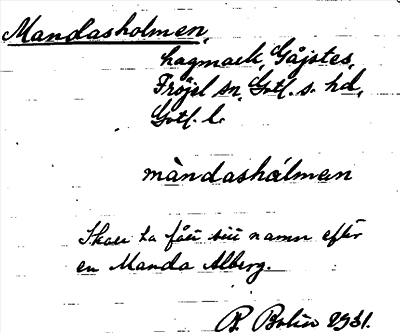 Mandasholmen,
hagmark, Gåjstes,
Fröjel sn, Gotl. s. hd,
Gotl. l.
màndashålmen
Skall ha fått sitt namn efter
en Manda Alberg.
B. Bolin 1931.